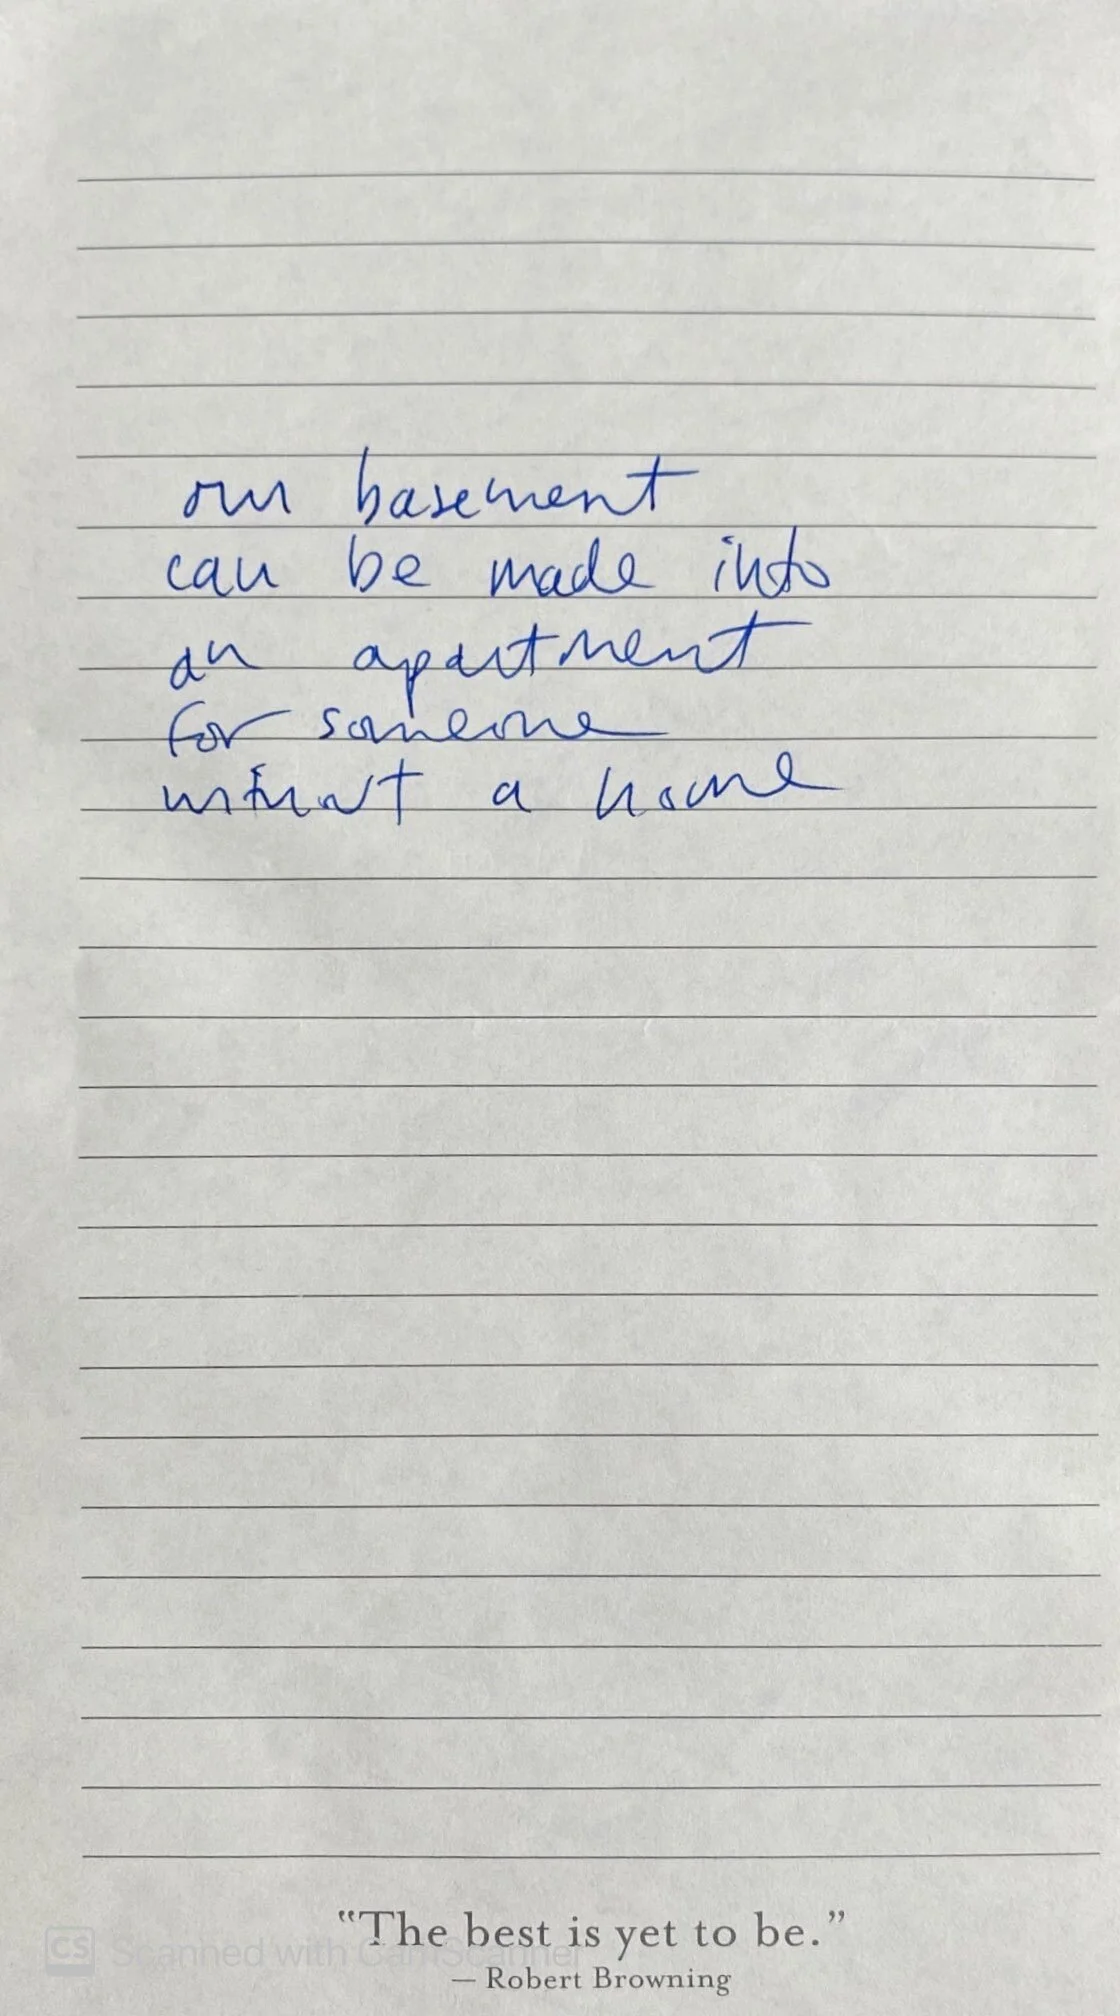 our basement
can be made into
an apartment
for someone
without a home
“The best is yet to be.”
CS Scanned with CamScanner
— Robert Browning